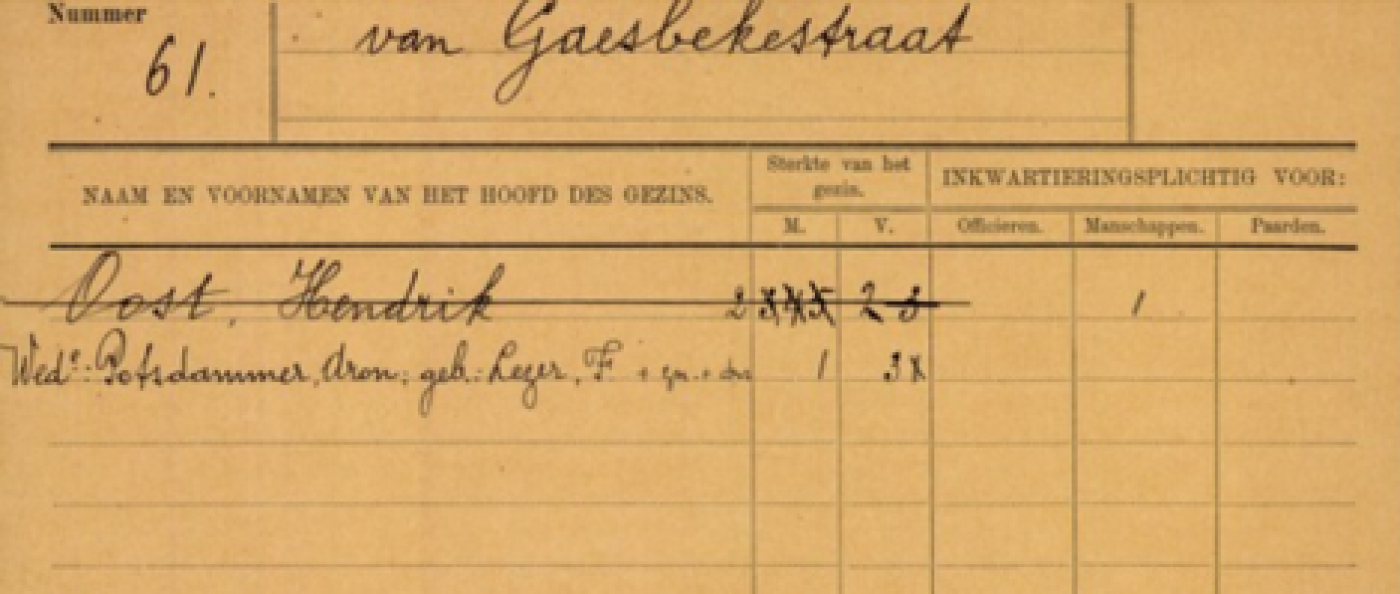 Nummer
61.
van Gaesbekestraat
NAAM EN VOORNAMEN VAN HET HOOFD DES GEZINS.
Sterkte van het
gezin.
INKWARTIERINGSPLICHTIG VOOR:
M. V. Officieren. Manschappen. Paarden.
Oost, Hendrik 2 2 3 1
Wede: Potsdammer, Aron; geb.: Lezer, F 1 3